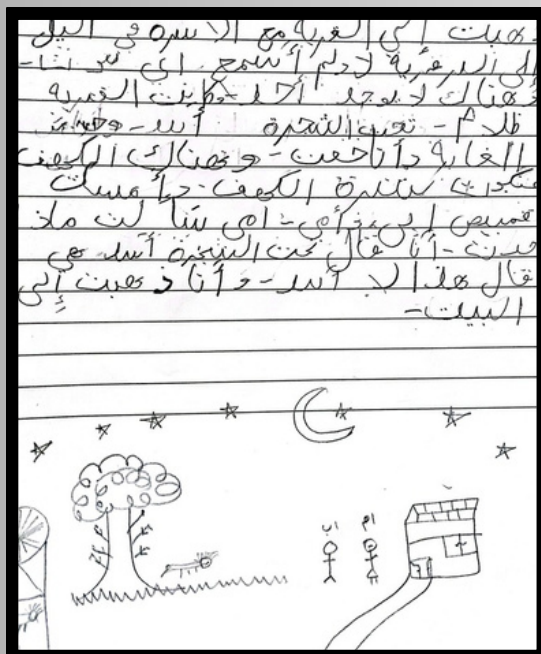 ذهبت إلى القرية مع الاسرة في اليل
إلى القرية لا ولم أسمع اي
وهناك لا يوجد أحد - وكانت القرية
ظلام - تحت الشجرة أسد -
الغابة وأنا خفت - وهناك الكهف
الكهف - وأمسك
قميص إبي، وأمي - امي سألت ماذا
حدث - أنا قال تحت الشجرة أسد هي
قال هذا لا أسد - و أنا ذهبت إلى
البيت -
اب
ام